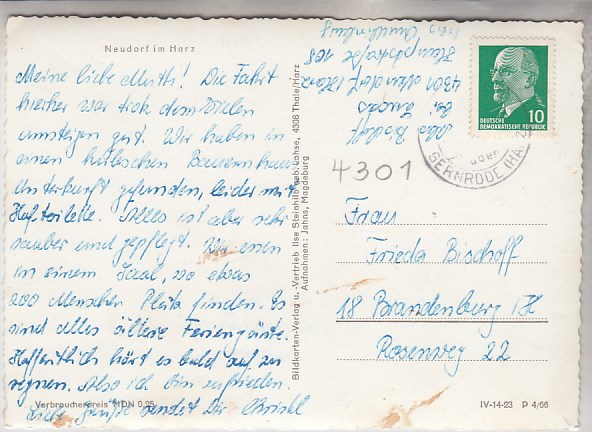 Neudorf im Harz
Meine liebe Mutti! Die Fahrt
hierher war trotz dem vielen
umsteigen gut. Wir haben in
einem hübschen Bauernhaus
Unterkunft gefunden, leider mit
Hoftoilette. Alles ist aber sehr
sauber und gepflegt. Wir essen
in einem Saal, wo etwas
200 Menschen Platz finden. Es
sind alles ältere Feriengäste.
Hoffentlich hört es bald auf zu
regnen. Also ich bin zufrieden.
Liebe Grüße sendet Dir Christl
Verbraucherpreis MDN 0,25
Bildkarten-Verlag u. -Vertrieb Ilse Steinhilb geb. Lohse, 4308 Thale/Harz
Aufnahmen: Jahns, Magdeburg
Bischoff
bei Lucas
4301 Neudorf/Harz
Hauptstraße 168
Kreis Quedlinburg
DEUTSCHE
DEMOKRATISCHE REPUBLIK
10
über
GERNRODE (HARZ)
4301
Frau
Frieda Bischoff
18 Brandenburg/H
Rosenweg 22
IV-14-23 P 4/66